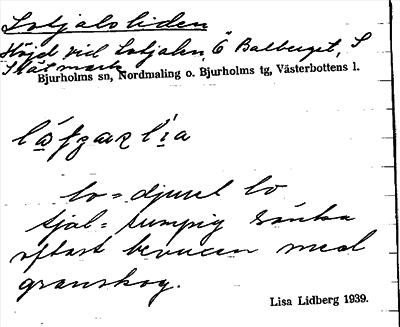 Lotjalsliden
Höjd vid Lotjalen, Ö Balberget, S
Bjurholms sn, Nordmaling o. Bjurholms tg, Västerbottens l.
lo = djuret lo
tjal = sumpig sänka
oftast bevuxen med
granskog.
Lisa Lidberg 1939.